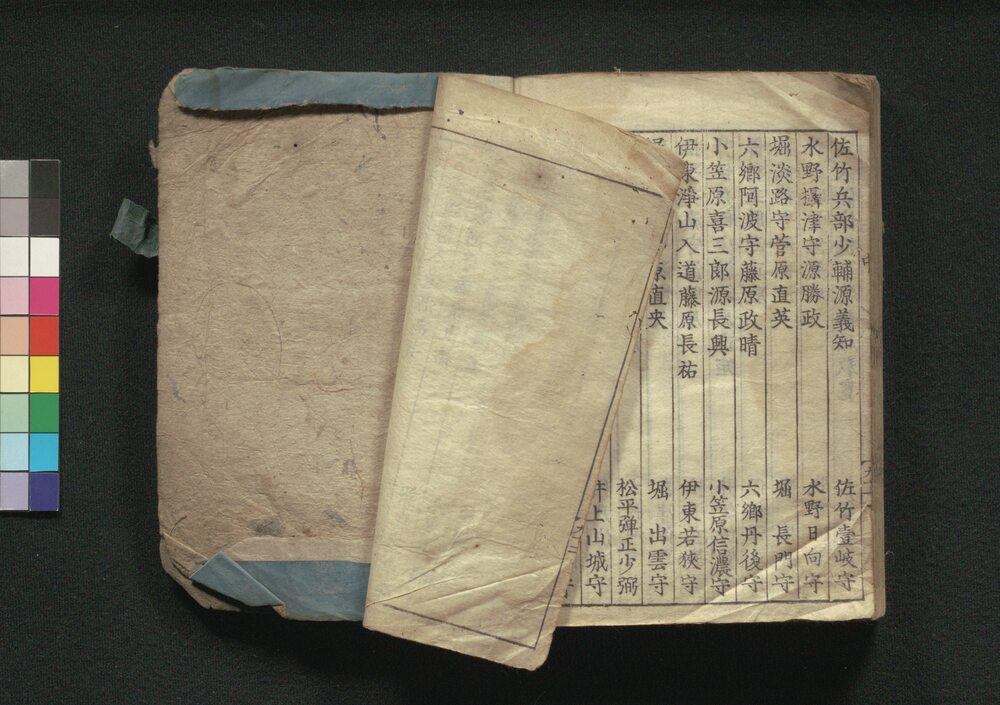 佐竹兵部少輔源義知 佐竹壹岐守
水野攝津守源勝政 水野日向守
堀淡路守菅原直英 堀長門守
六鄉阿波守藤原政晴 六鄉丹後守
小笠原喜三郎源長興 小笠原信濃守
伊東淨山入道藤原長祐 伊東若狹守
原直央 堀出雲守
松平彈正少弼
井上山城守
守